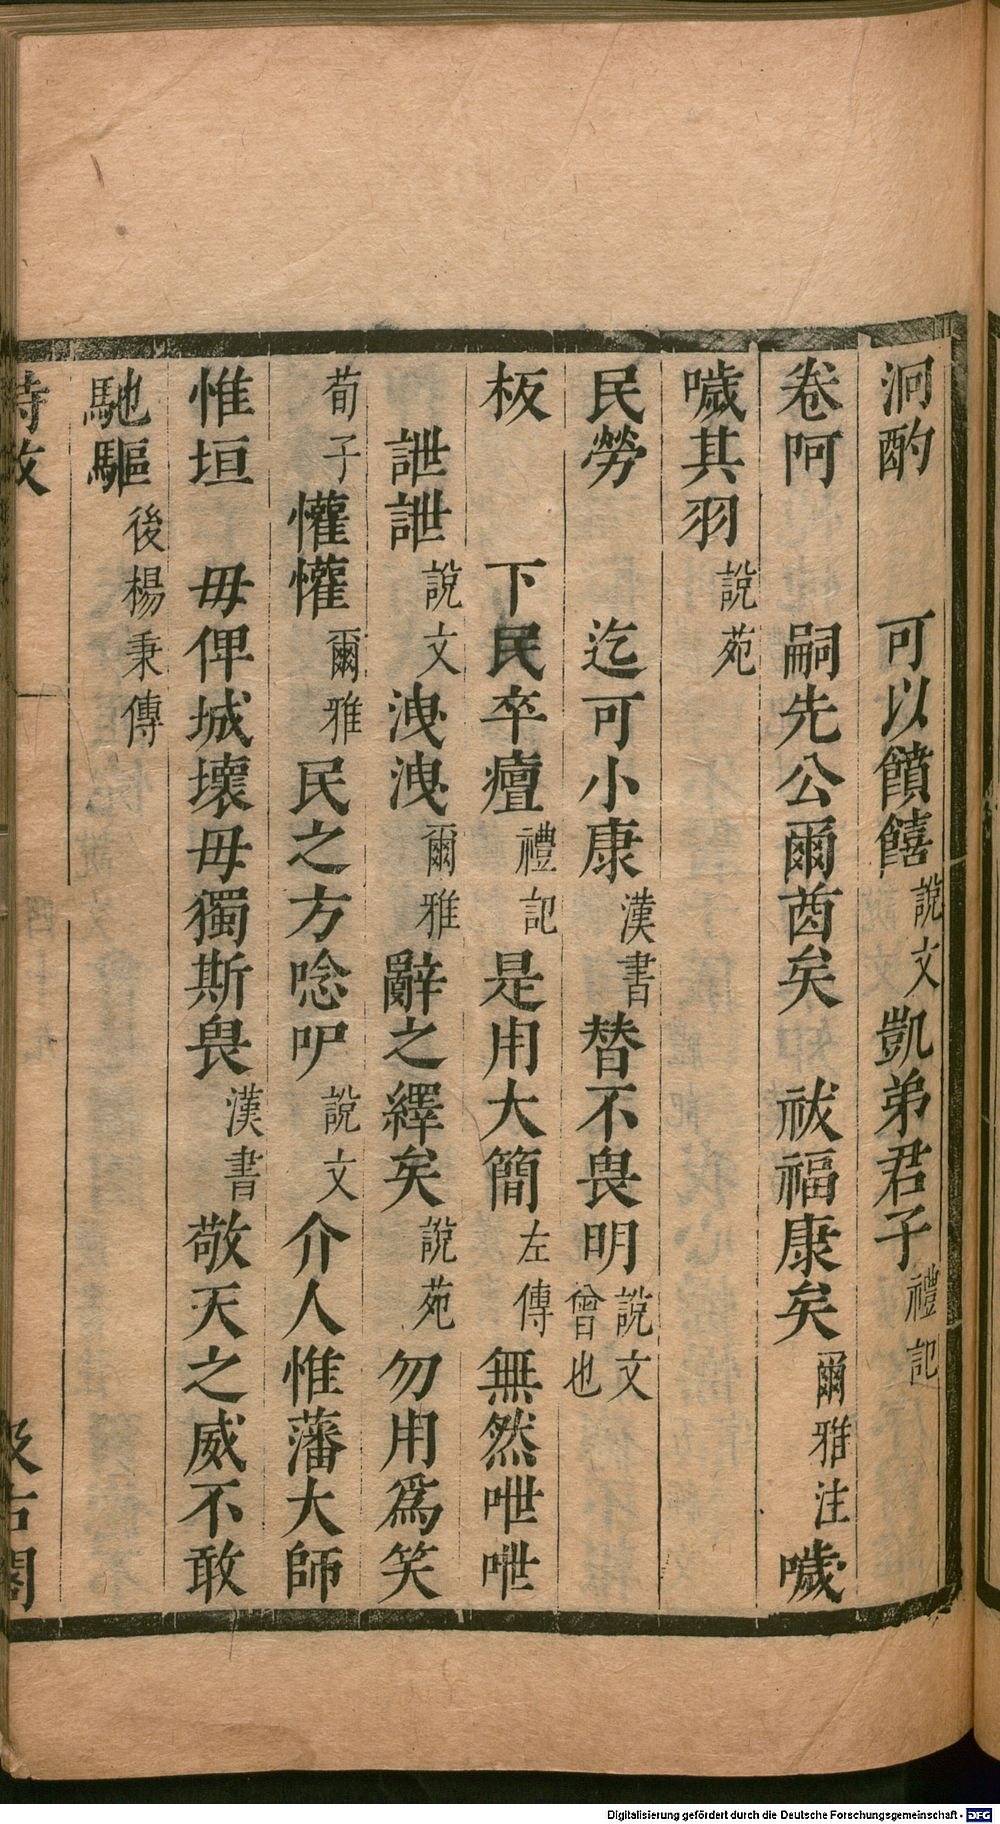 泂酌　可以饙饎說文凱弟君子禮記
卷阿　嗣先公爾酋矣　祓福康矣爾雅注噦
噦其羽說苑
民勞　迄可小康漢書替不畏明說文曾也
板　下民卒癉禮記是用大簡左傳無然呭呭
詍詍說文洩洩爾雅辭之繹矣說苑勿用爲笑
荀子懽懽爾雅民之方唸吚說文介人惟藩大師
惟垣　毋俾城壞毋獨斯畏漢書敬天之威不敢
馳驅後楊秉傳
詩攷
汲古閣
Digitalisierung gefördert durch die Deutsche Forschungsgemeinschaft - DFG